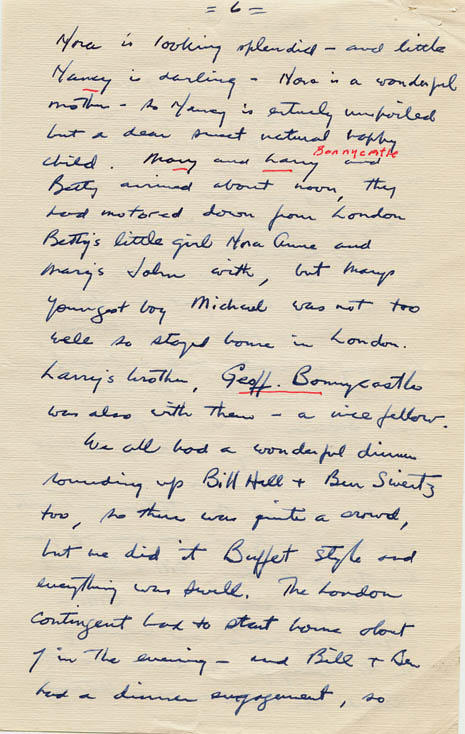 = 6 =
Nora is looking splendid - and little
Nancy is darling - Nora is a wonderful
mother - so Nancy is entirely unspoiled
but a dear sweet natural happy
Bonnycastle
child. Mary and Larry and
Betty arrived about noon, they
had motored down from London
Betty's little girl Nora Anne and
Mary's John with, but Marys
youngest boy Michael was not too
well so stayed home in London.
Larry's brother, Geoff. Bonnycastle
was also with them - a nice fellow.
We all had a wonderful dinner
rounding up Bill Hall + Ben Sivertz
too, so there was quite a crowd,
but we did it Buffet style and
everything was swell. The London
contingent had to start home about
7 in the evening - and Bill + Ben
had a dinner engagement, so